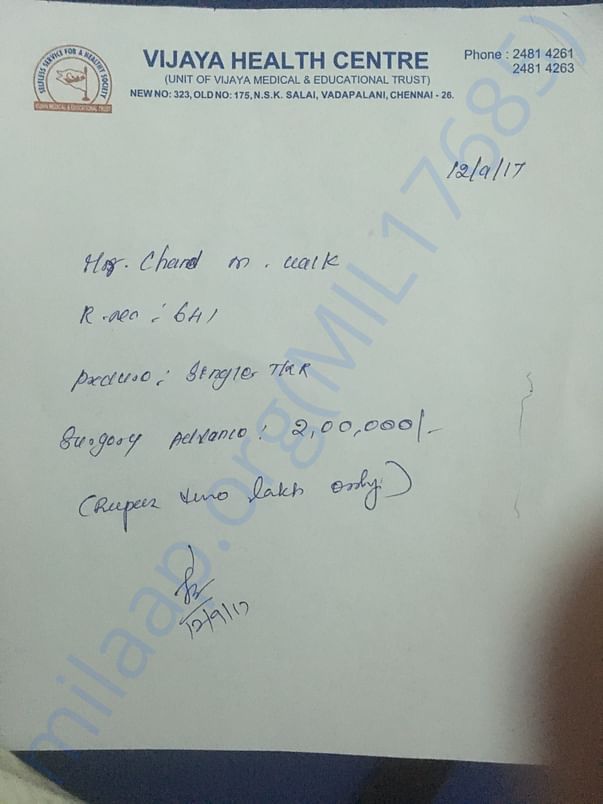 SELFLESS SERVICE FOR A HEALTHY SOCIETY
VIJAYA MEDICAL & EDUCATIONAL TRUST
VIJAYA HEALTH CENTRE
(UNIT OF VIJAYA MEDICAL & EDUCATIONAL TRUST)
NEW NO: 323, OLD NO: 175, N.S.K. SALAI, VADAPALANI, CHENNAI - 26.
Phone : 2481 4261
2481 4263
12/9/17
Chand m.
R.no : 641
: Single THR
Surgery Advance : 2,00,000/-
(Rupees two lakh only)
12/9/17
milaap.org(MIL17685)